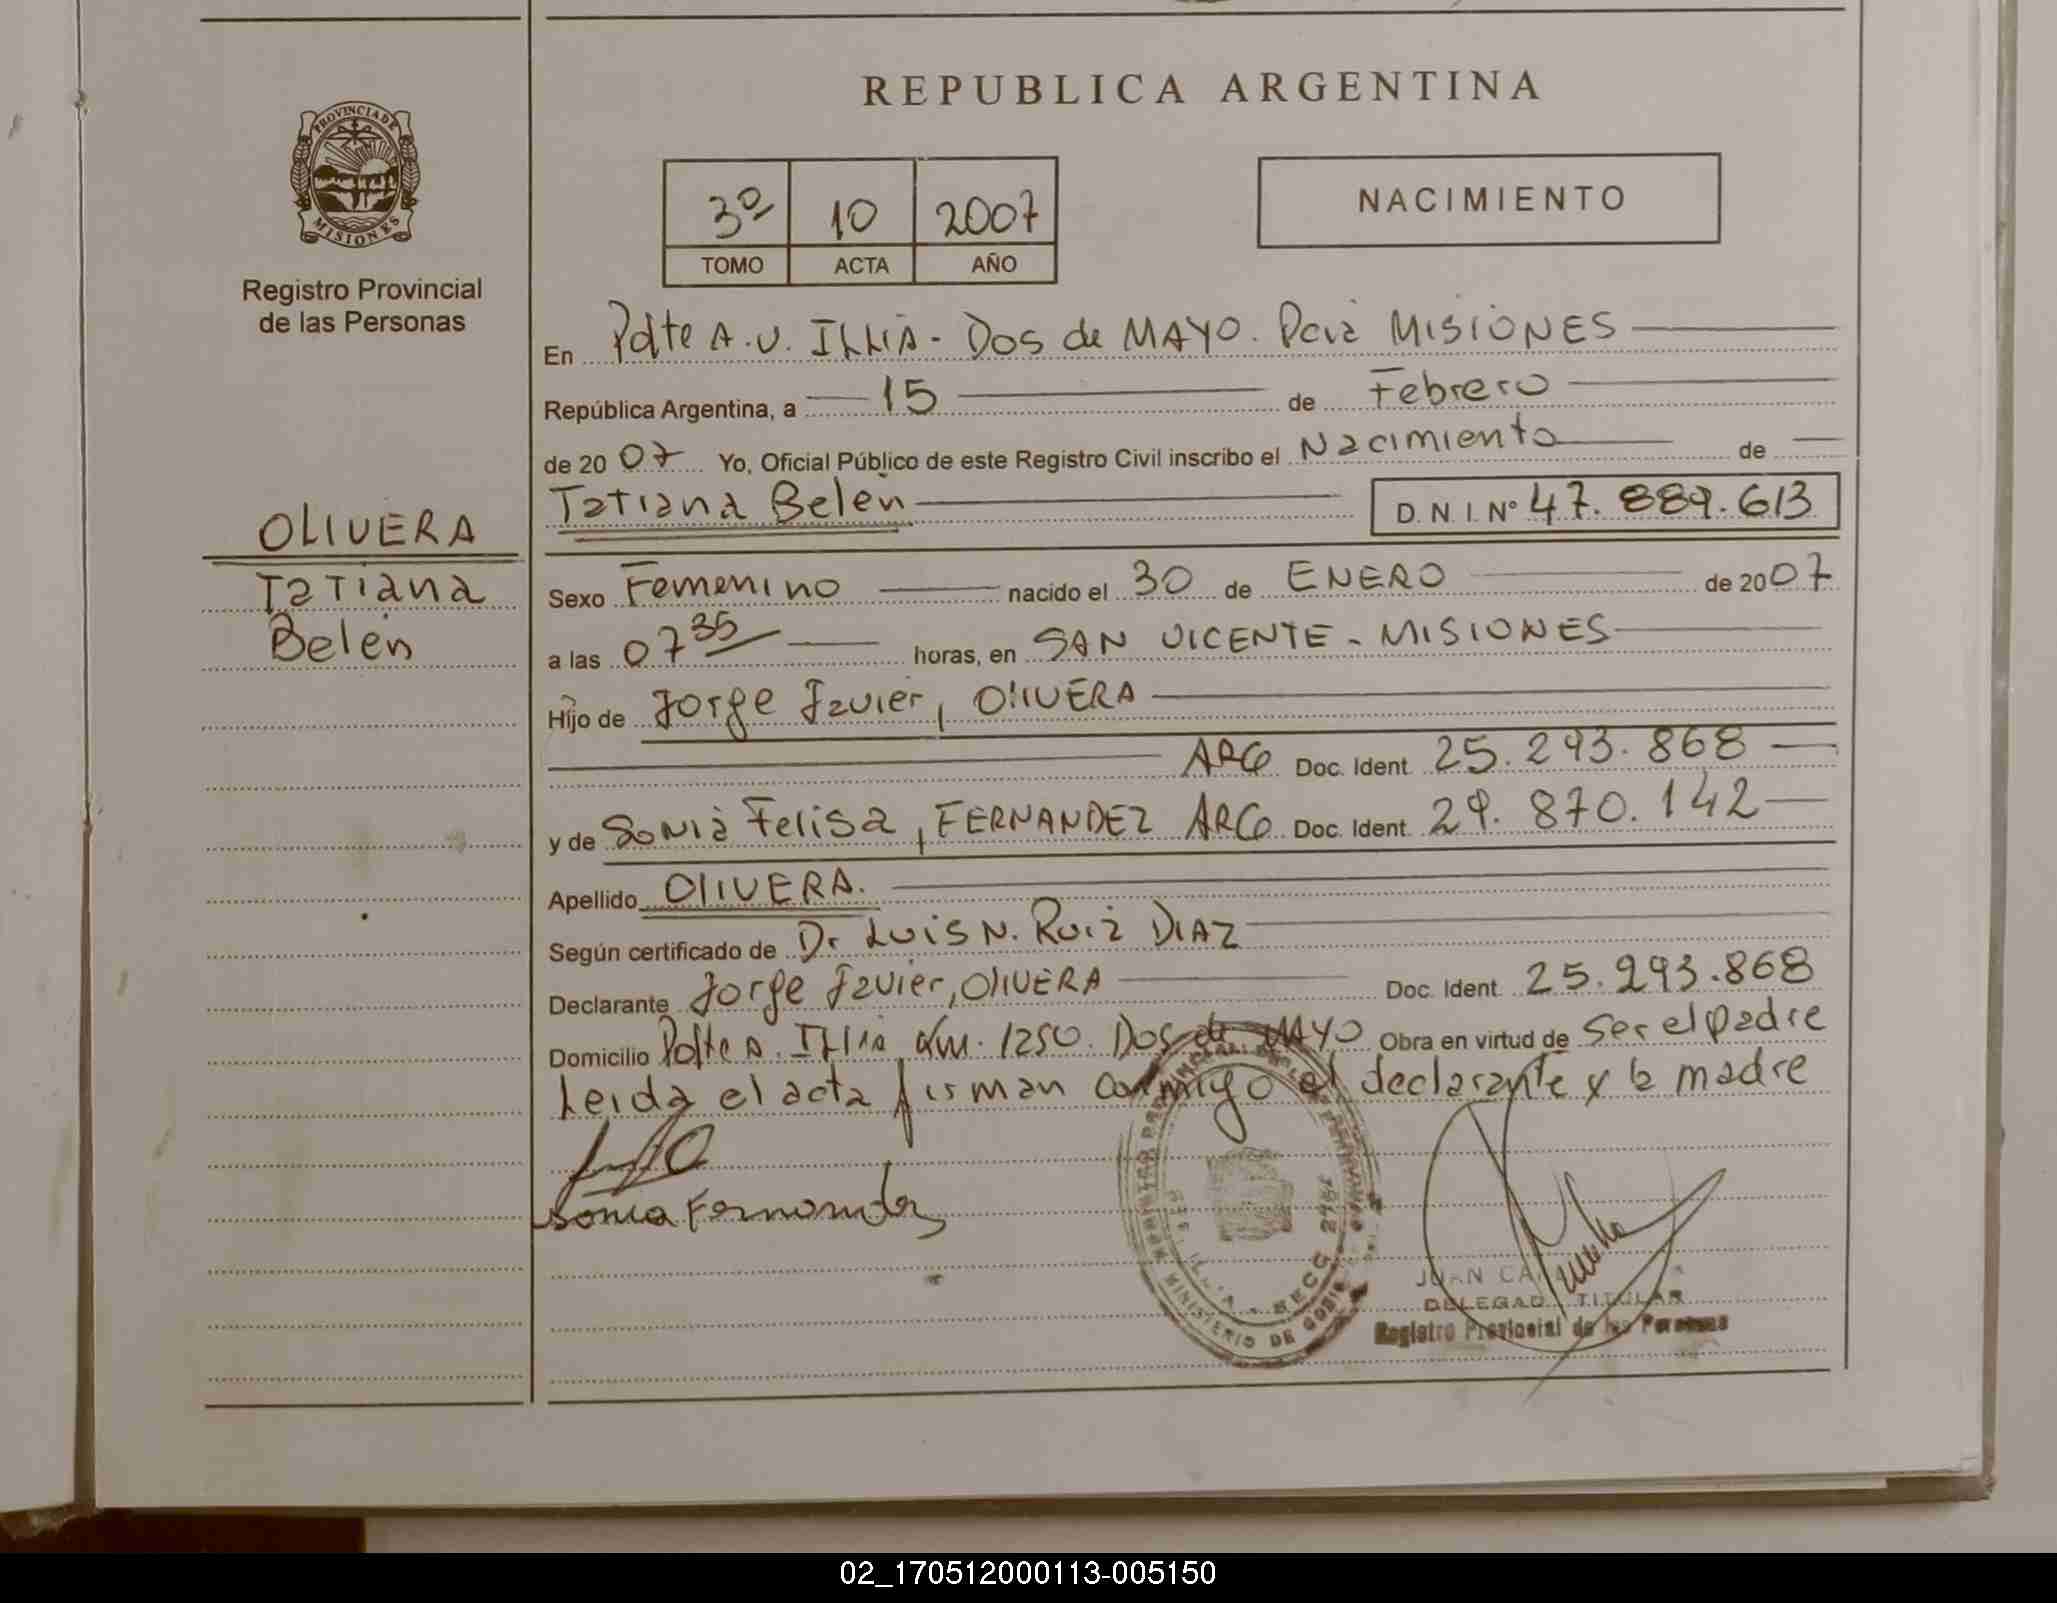 REPUBLICA ARGENTINA
PROVINCIA DE
MISIONES
Registro Provincial
de las Personas
3º 10 2007
TOMO ACTA AÑO
NACIMIENTO
En Pdte A. U. ILLIA - DOS de MAYO. Pcia MISIONES
República Argentina, a 15 de Febrero
de 20 07 Yo, Oficial Público de este Registro Civil inscribo el Nacimiento de
Tatiana Belén D. N. I. Nº 47.889.613
OLIVERA
Tatiana
Belén
Sexo Femenino nacido el 30 de ENERO de 20 07
a las 07 35 horas, en SAN VICENTE - MISIONES
Hijo de Jorge Javier, OLIVERA
ARG Doc. Ident. 25.293.868
y de Sonia Felisa, FERNANDEZ ARG Doc. Ident. 29.870.142
Apellido OLIVERA.
Según certificado de Dr Luis N. Ruiz DIAZ
Declarante Jorge Javier, OLIVERA Doc. Ident. 25.293.868
Domicilio Pdte A. Illia Km. 1250. Dos de MAYO Obra en virtud de Ser el padre
Leida el acta firman conmigo el declarante y la madre
Sonia Fernandez
MINISTERIO DE GOBIE
JUAN CA
DELEGAD TITULAR
Registro Provincial de las Personas
02_170512000113-005150